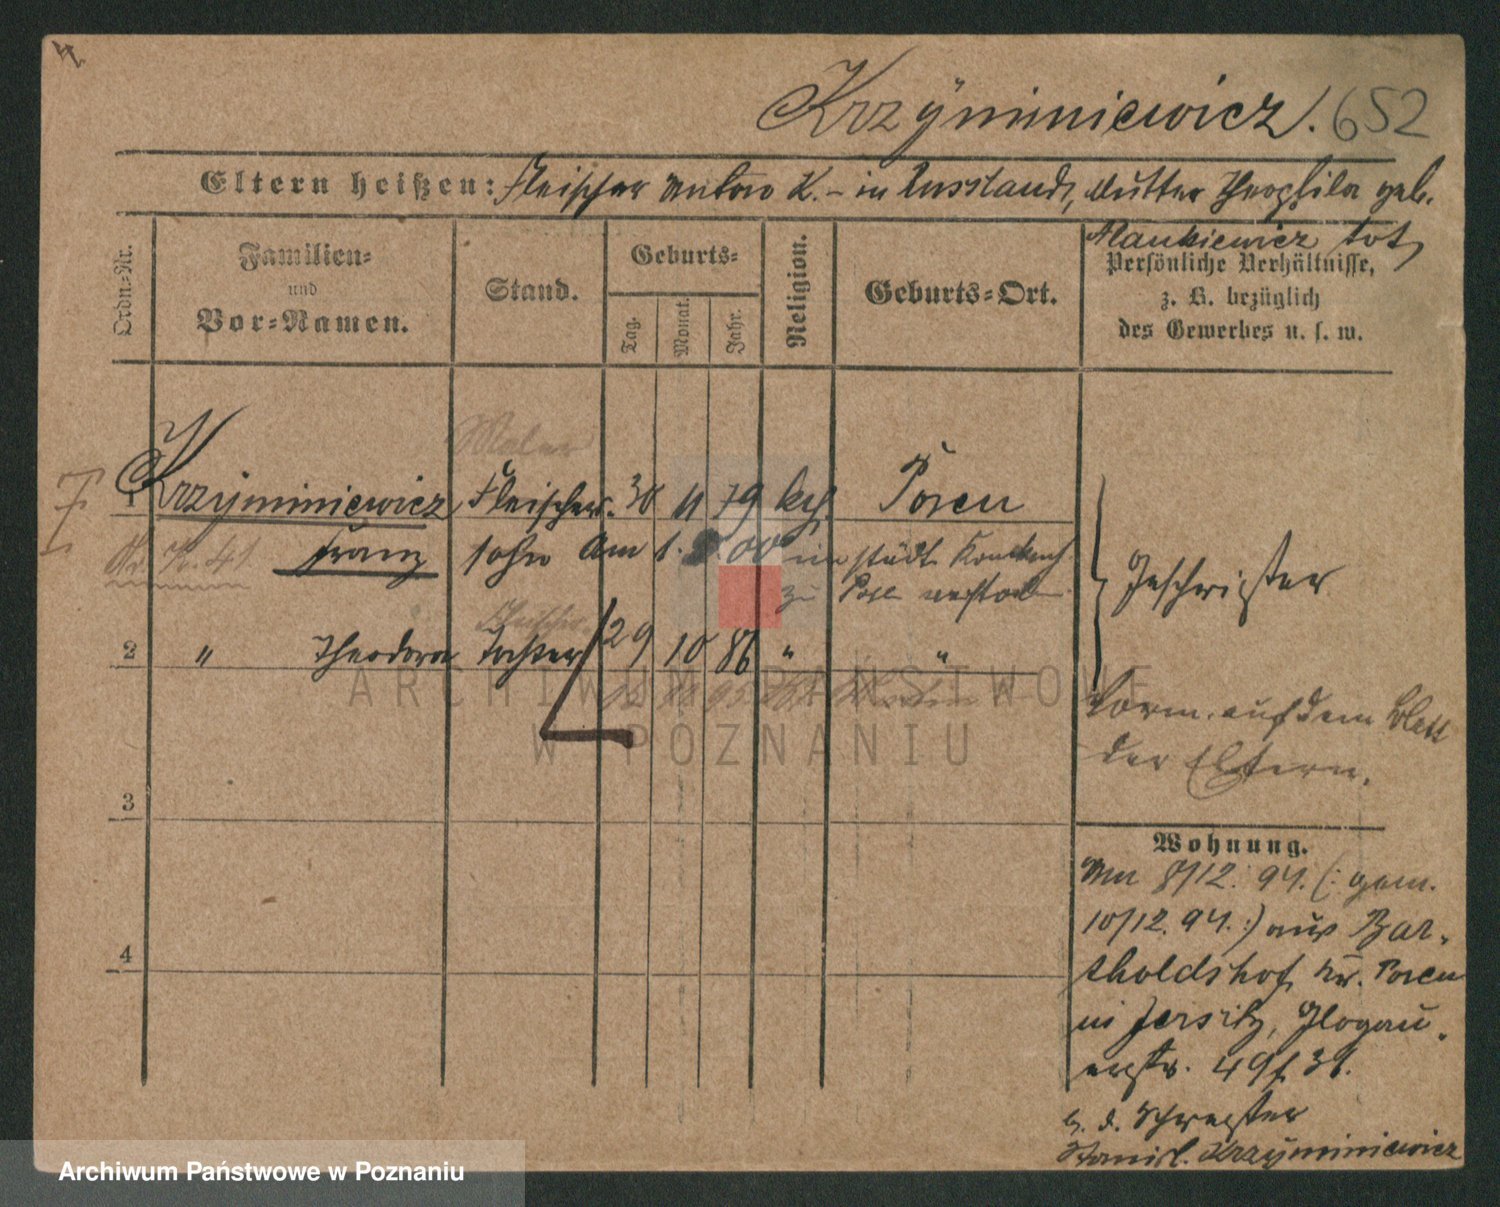 Krzÿminiewicz. 652
Eltern heißen: Fleischer Anton K. – in Russland, Mutter Theophila geb.
Mankiewicz tot,
Ordn.-Nr.
Familien-
und
Vor-Namen.
Stand.
Geburts-
Tag.
Monat.
Jahr.
Religion.
Geburts-Ort.
Persönliche Verhältnisse,
z. B. bezüglich
des Gewerbes u. s. w.
Maler
1 Krzÿminiewicz Fleischer. 30 11 79 kth. Posen
Franz Sohn Am 1. 00 im städt. Krankenh.
zu Posen verstorben.
Geschwister
Fleischer
2 " Theodora Tochter 29 10 86 " "
Vorm. auf dem Blatt
der Eltern.
3
Wohnung.
Am 8/12. 94. (: gem.
10/12. 94. :) aus Bar-
4
tholdshof, Kr. Posen
in Jersitz, Glogau-
erstr. 49 f. 39.
b. d. Schwester
Stanisl. Krzÿminiewicz
ARCHIWUM PAŃSTWOWE
W POZNANIU
Archiwum Państwowe w Poznaniu